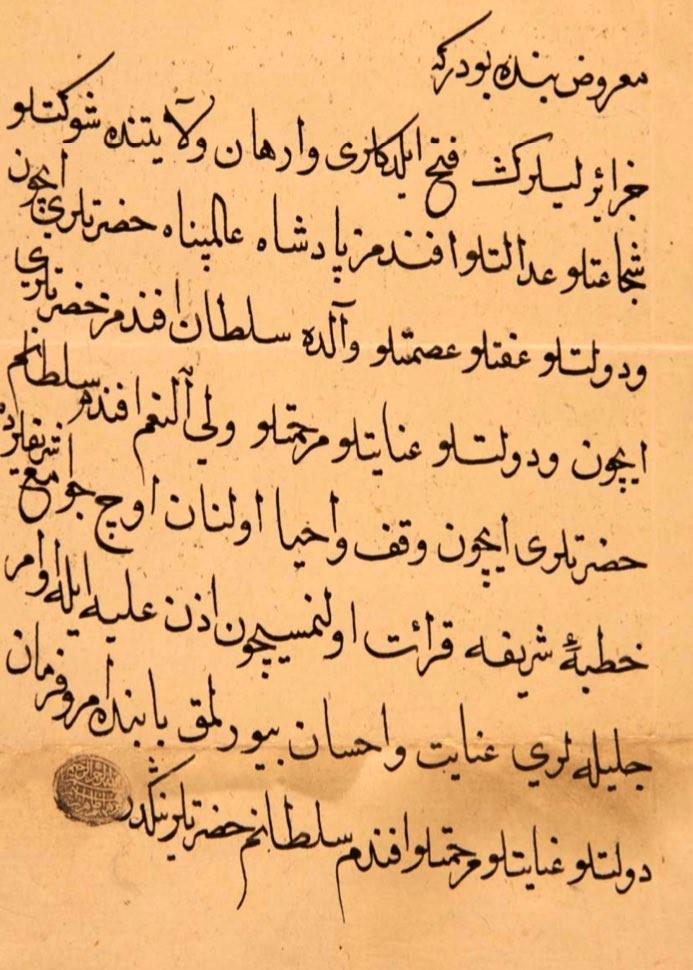 معروض بنده بودركه
جزائرليلرك فتح ايلدكلرى وارهان ولايتنده شوكتلو
شجاعتلو عدالتلو افندمز پادشاه عالمپناه حضرتلرى ايچون
ودولتلو عفتلو عصمتلو والده سلطان افندمز حضرتلرى
ايچون ودولتلو عنايتلو مرحمتلو ولي النعم افندم سلطانم
حضرتلرى ايچون وقف واحيا اولنان اوچ جوامع شريفلرده
خطبهٔ شريفه قرائت اولنمسيچون اذن عليه ايله اوامر
جليله لري عنايت واحسان بيورلمق بابنده امر وفرمان
دولتلو عنايتلو مرحمتلو افندم سلطانم حضرتلرينكدر